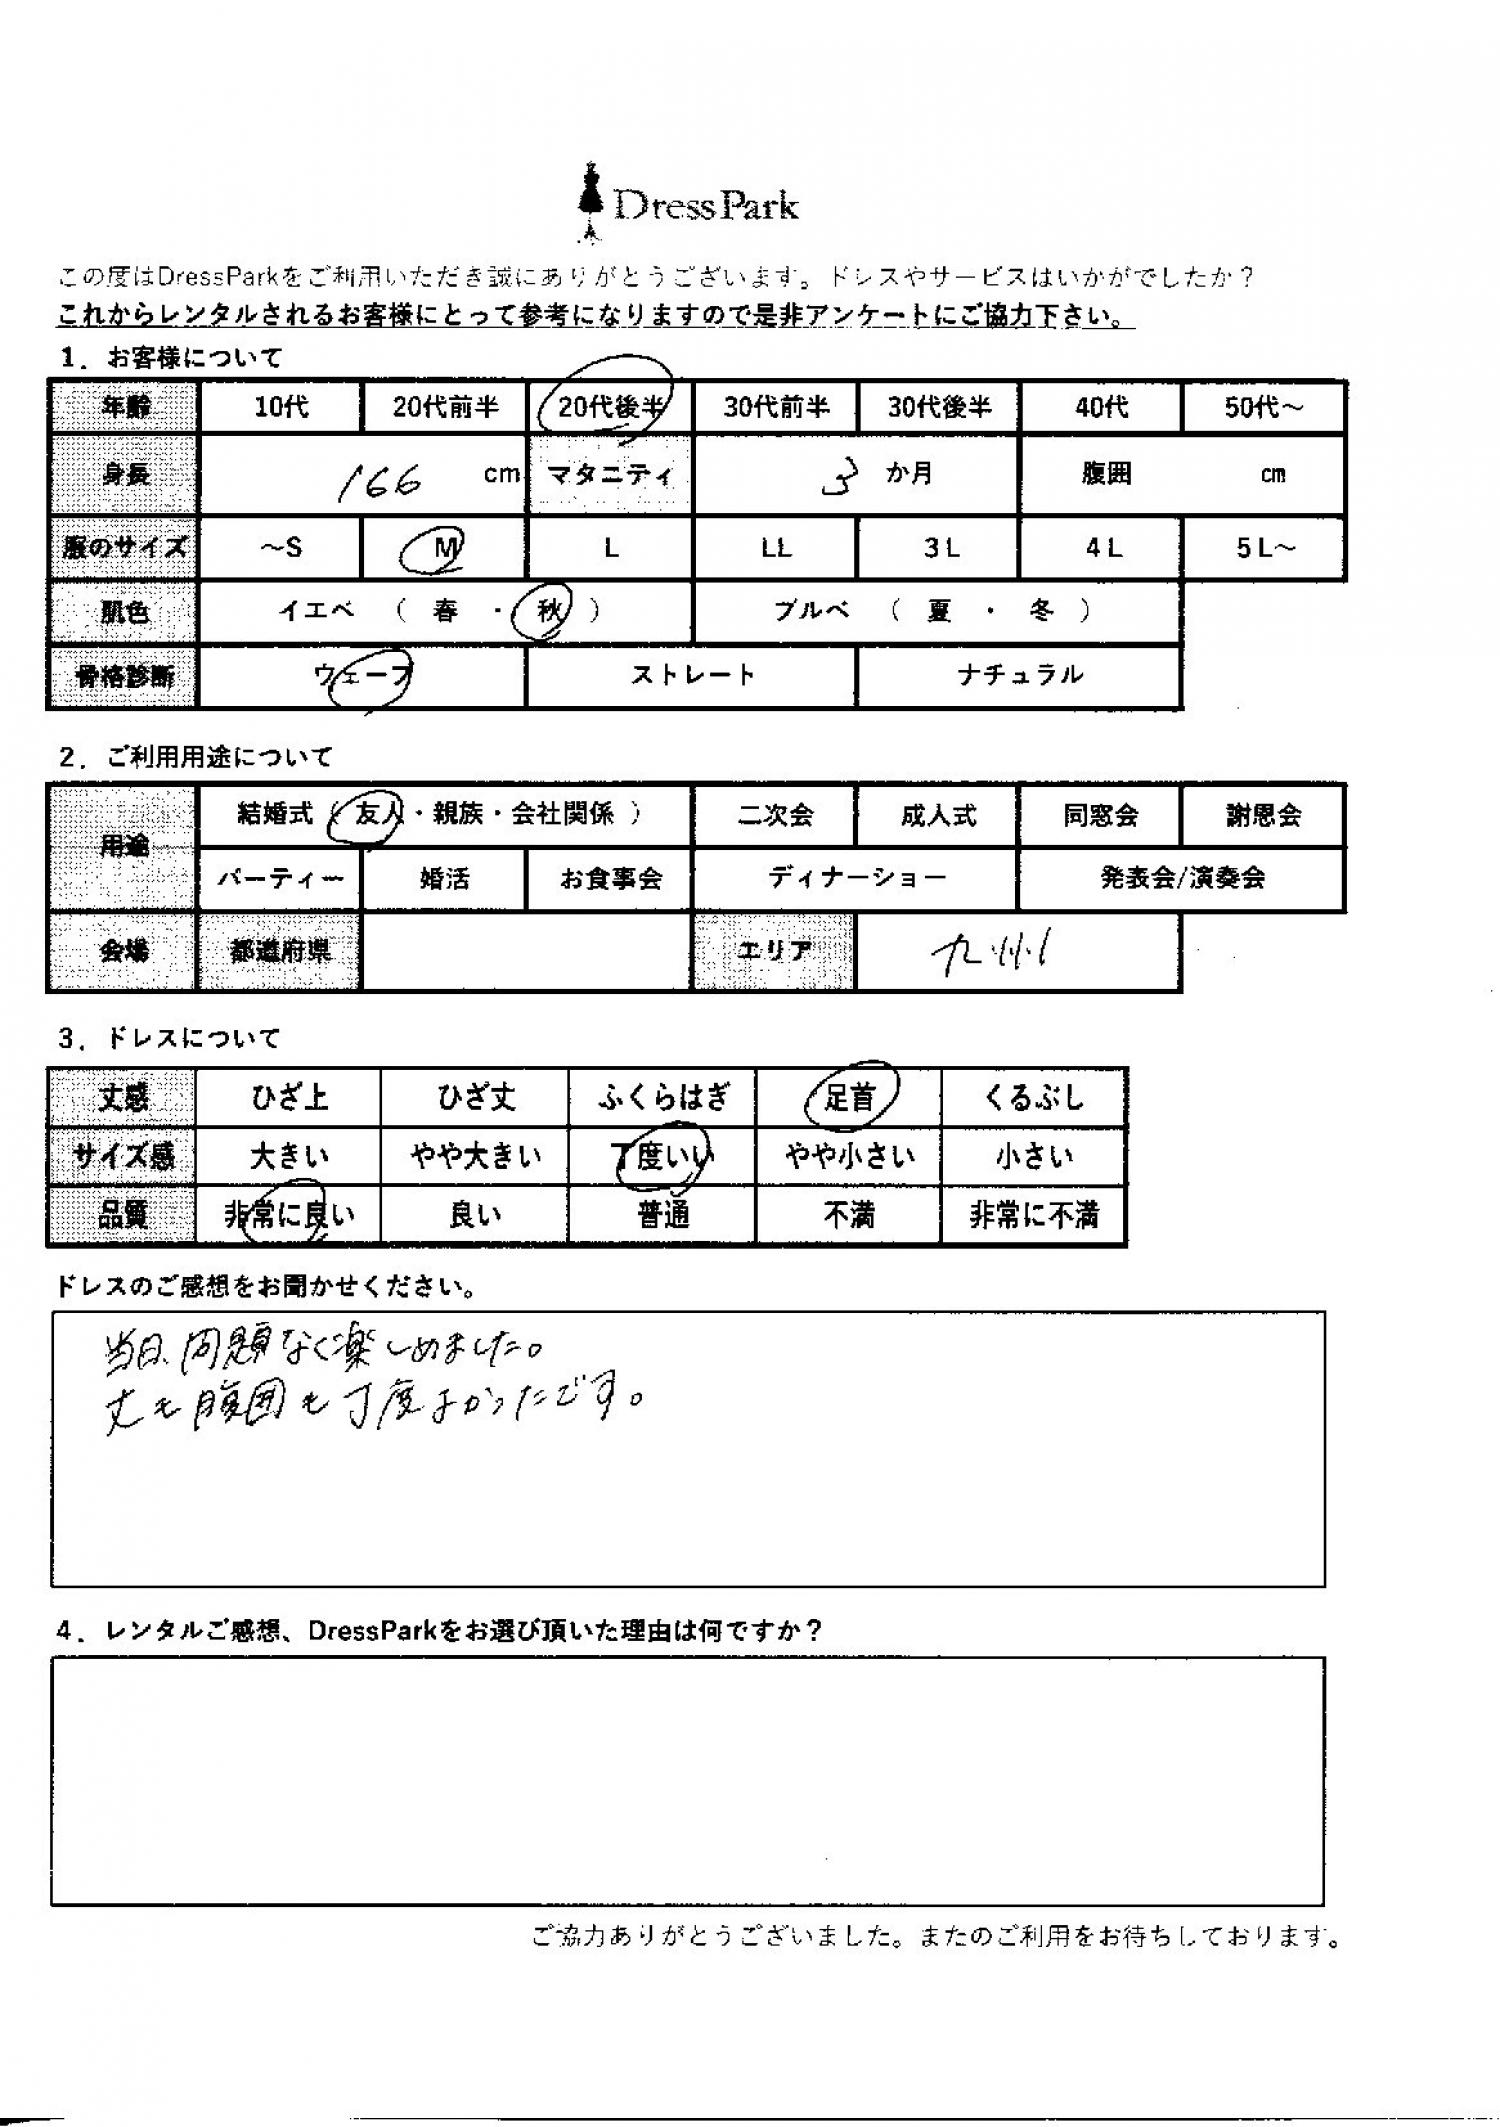 DressPark
この度はDressParkをご利用いただき誠にありがとうございます。ドレスやサービスはいかがでしたか？
これからレンタルされるお客様にとって参考になりますので是非アンケートにご協力下さい。
1．お客様について
年齢 10代 20代前半 20代後半 30代前半 30代後半 40代 50代～
身長 166 cm マタニティ 3 か月 腹囲 cm
服のサイズ ～S M L LL 3L 4L 5L～
肌色 イエベ（ 春 ・ 秋 ） ブルベ（ 夏 ・ 冬 ）
骨格診断 ウェーブ ストレート ナチュラル
2．ご利用用途について
用途 結婚式（ 友人・親族・会社関係 ） 二次会 成人式 同窓会 謝恩会
パーティー 婚活 お食事会 ディナーショー 発表会/演奏会
会場 都道府県 エリア 九州
3．ドレスについて
丈感 ひざ上 ひざ丈 ふくらはぎ 足首 くるぶし
サイズ感 大きい やや大きい 丁度いい やや小さい 小さい
品質 非常に良い 良い 普通 不満 非常に不満
ドレスのご感想をお聞かせください。
当日、問題なく楽しめました。
丈も腹囲も丁度よかったです。
4．レンタルご感想、DressParkをお選び頂いた理由は何ですか？
ご協力ありがとうございました。またのご利用をお待ちしております。